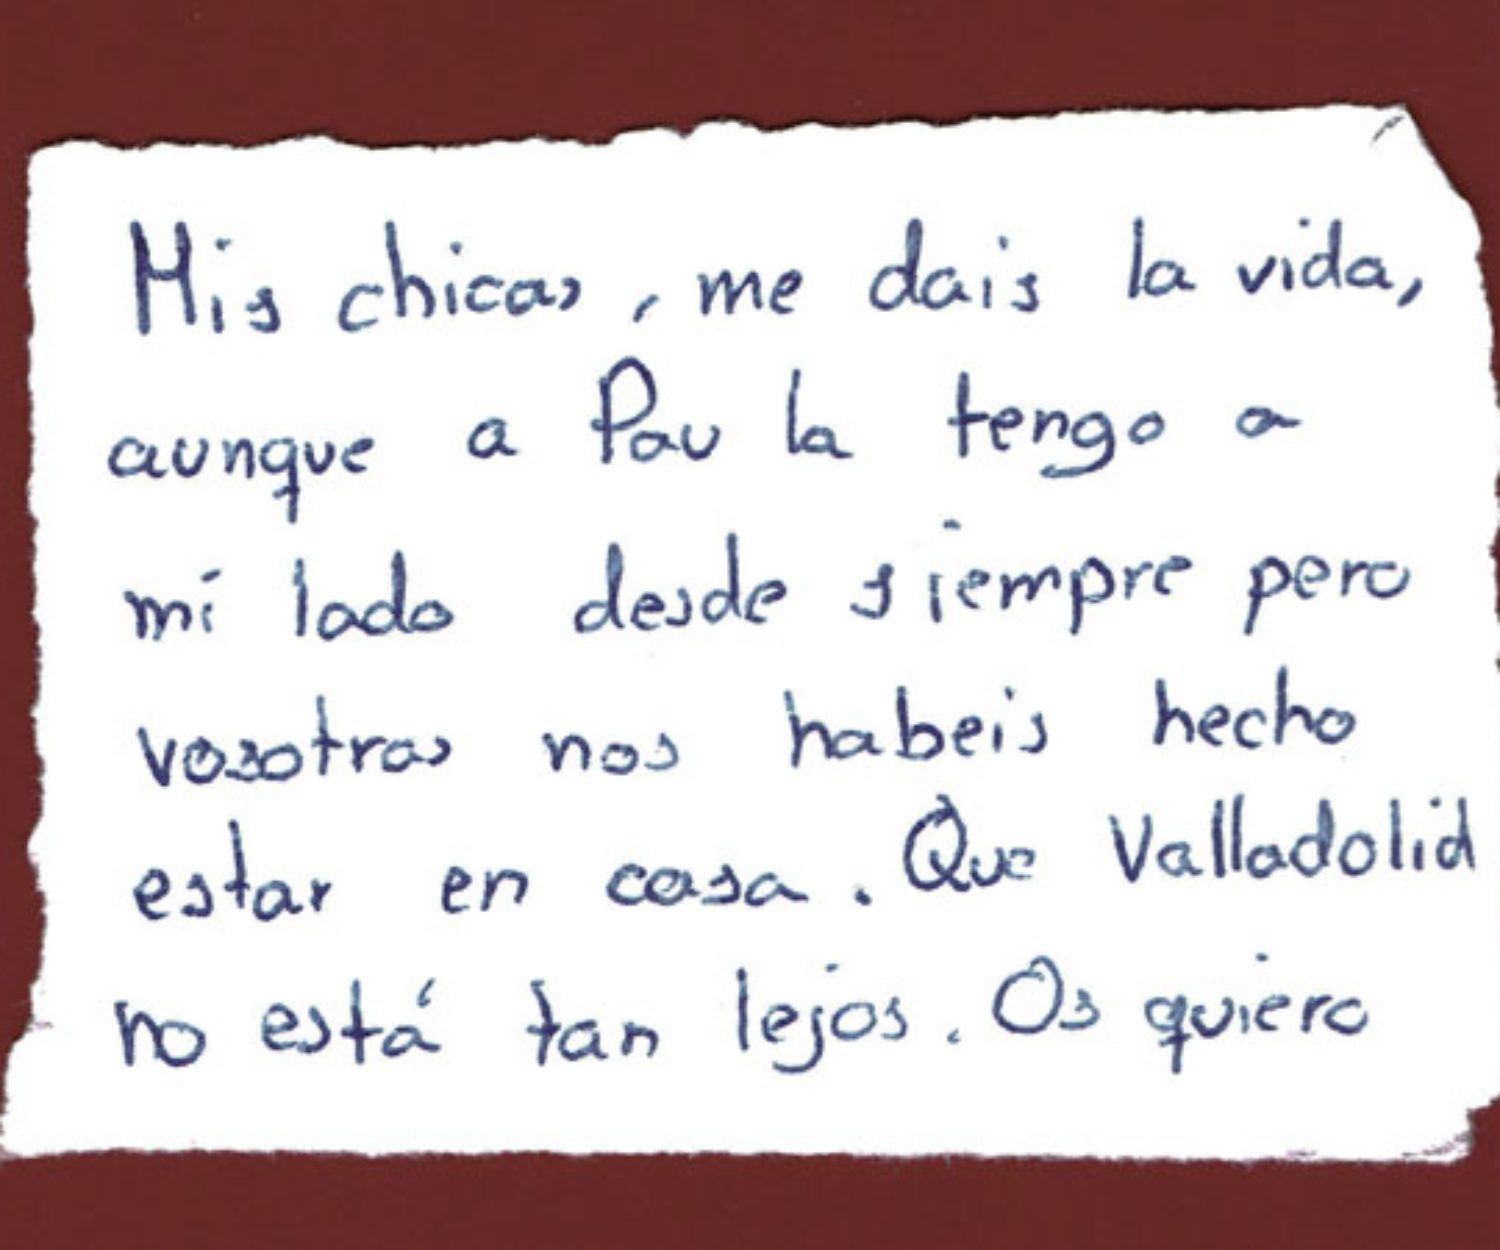 Mis chicas, me dais la vida,
aunque a Pau la tengo a
mi lado desde siempre pero
vosotras nos habeis hecho
estar en casa. Que Valladolid
no está tan lejos. Os quiero